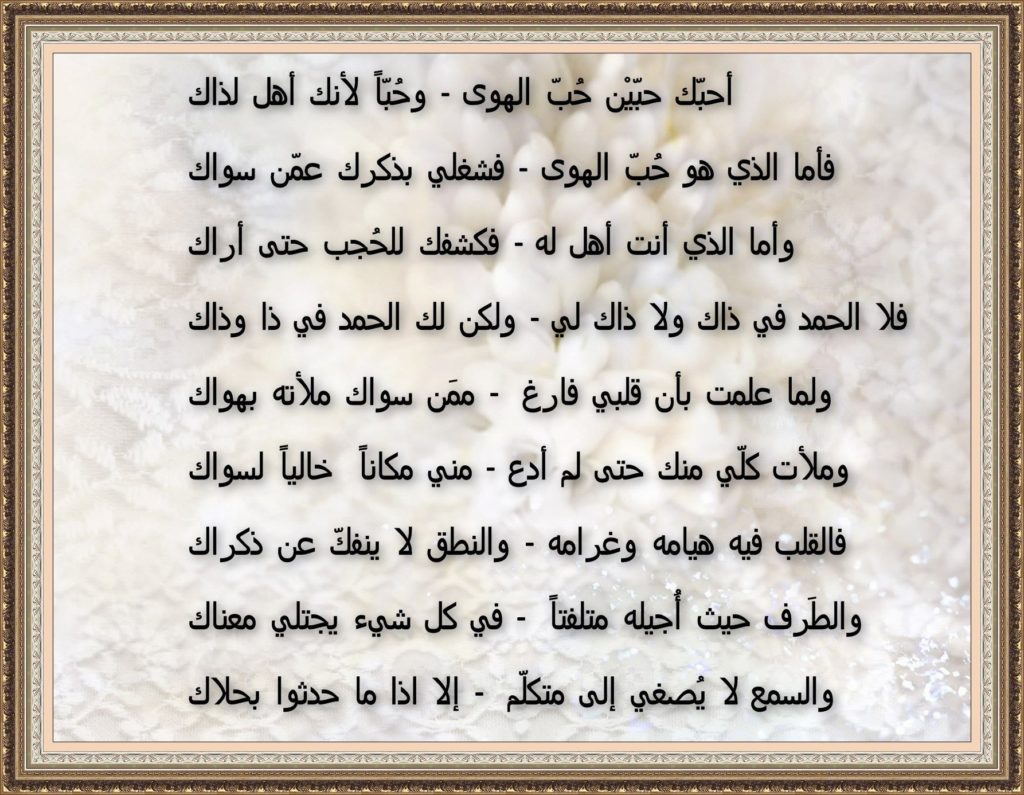 أحبّك حبّيْن حُبّ الهوى - وحُبّاً لأنك أهل لذاك
فأما الذي هو حُبّ الهوى - فشغلي بذكرك عمّن سواك
وأما الذي أنت أهل له - فكشفك للحُجب حتى أراك
فلا الحمد في ذاك ولا ذاك لي - ولكن لك الحمد في ذا وذاك
ولما علمت بأن قلبي فارغ - ممَن سواك ملأته بهواك
وملأت كلّي منك حتى لم أدع - مني مكاناً خالياً لسواك
فالقلب فيه هيامه وغرامه - والنطق لا ينفكّ عن ذكراك
والطَرف حيث أُجيله متلفتاً - في كل شيء يجتلي معناك
والسمع لا يُصغي إلى متكلّم - إلا اذا ما حدثوا بحلاك